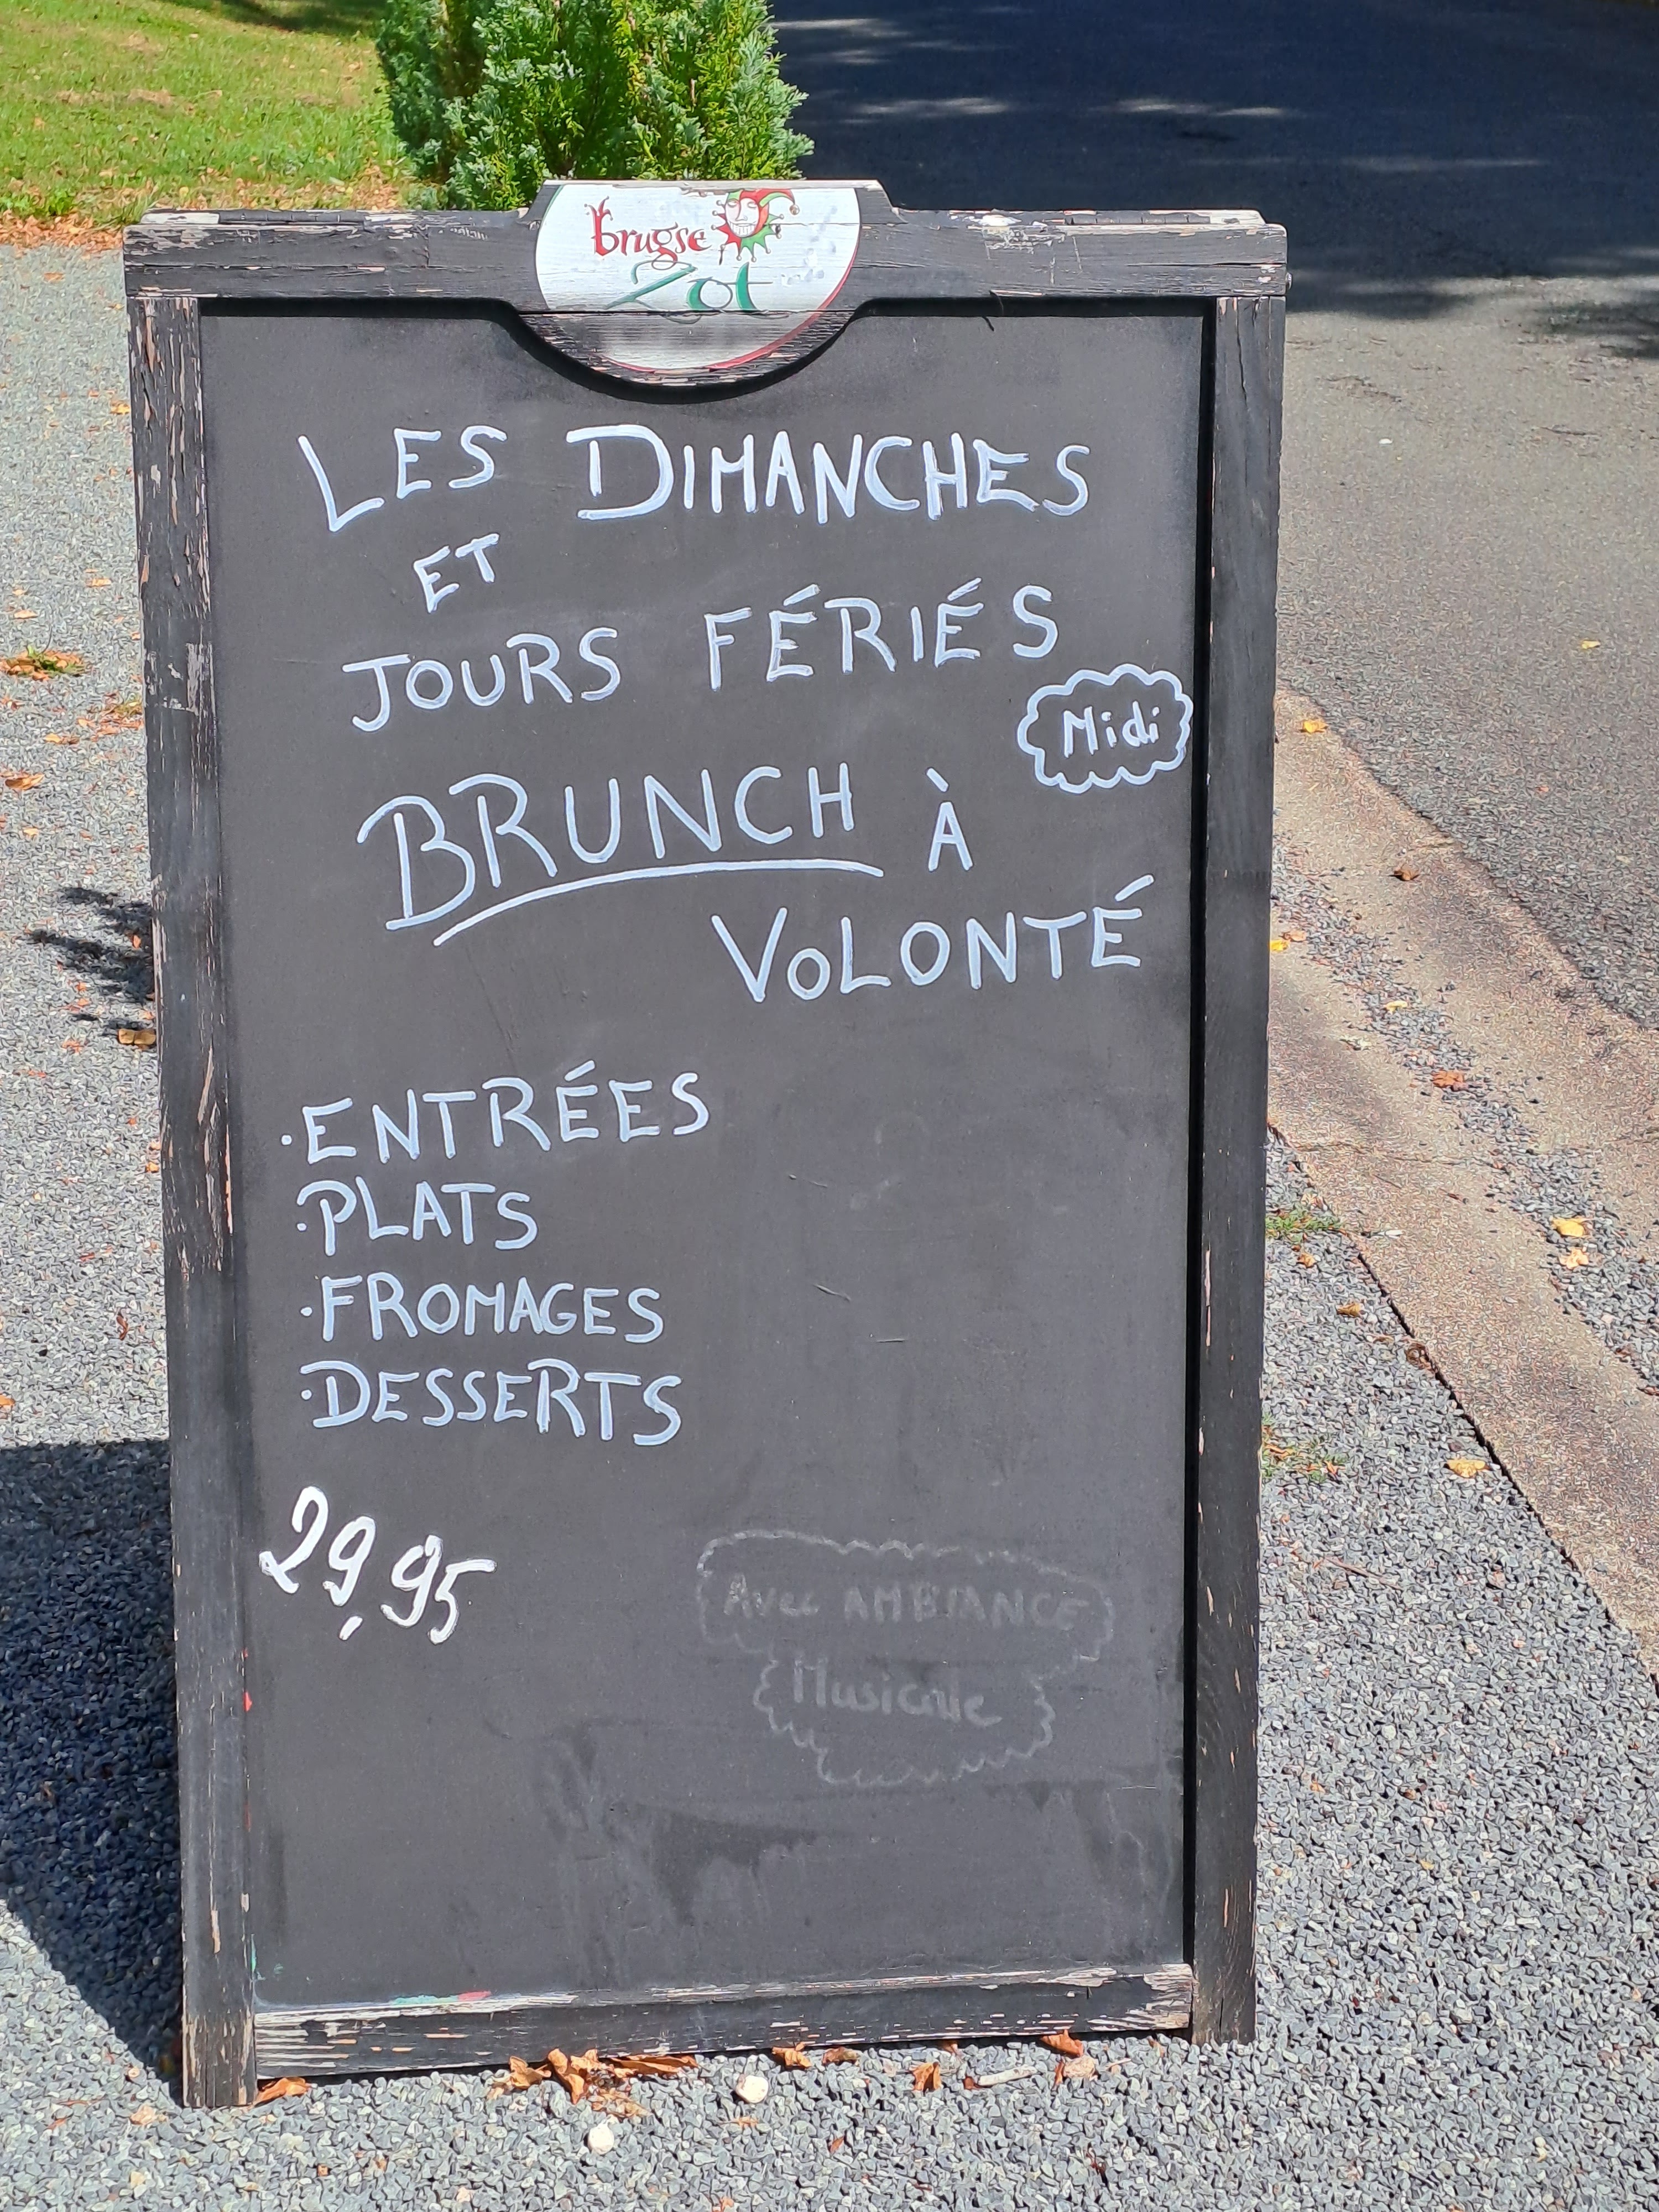 Brugse
Zot
LES DIMANCHES
ET
JOURS FÉRIÉS
Midi
BRUNCH À
VOLONTÉ
·ENTRÉES
·PLATS
·FROMAGES
·DESSERTS
29,95
Avec AMBIANCE
Musicale